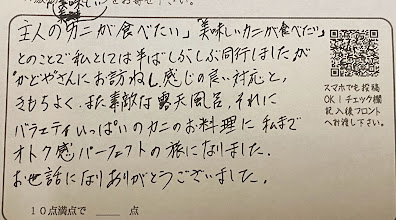 美味しい をお寄せ下さい。
主人の"カニが食べたい" "美味しいカニが食べたい"
とのことで私としては半ばしぶしぶ同行しましたが
"かどや"さんにお訪ねし感じの良い対応と、
きもちよく、また素敵な露天風呂、それに
バラエティいっぱいのカニのお料理に 私まで
オトク感パーフェクトの旅になりました。
お世話になりありがとうございました。
スマホでも投稿
OK!チェック欄
記入後フロント
へお渡し下さい。
10点満点で 点